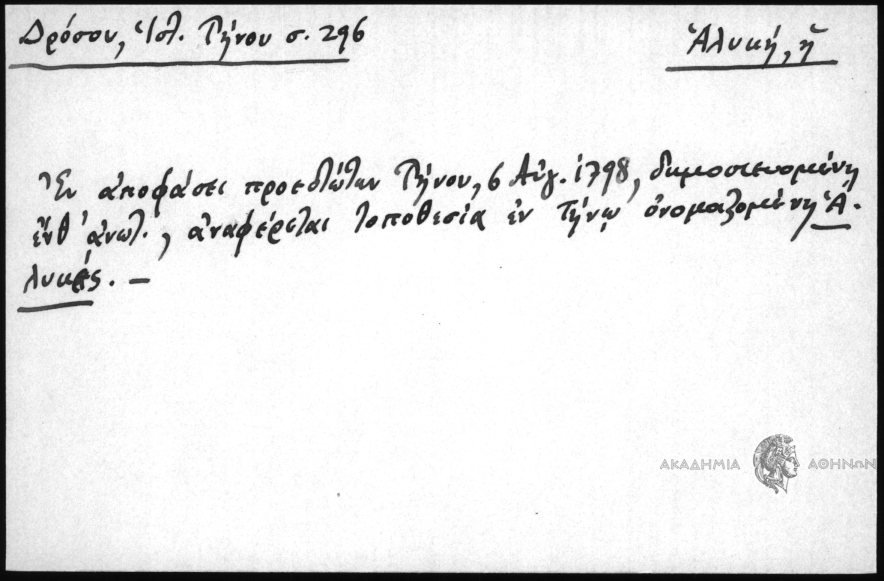 Δρόσου, Ἱστ. Τήνου σ. 296
Ἁλυκή, ἡ
Ἐν ἀποφάσει προεστώτων Τήνου, 6 Αὐγ. 1798, δημοσιευομένῃ
ἔνθ' ἀνωτ., ἀναφέρεται τοποθεσία ἐν Τήνῳ ὀνομαζομένη Ἁ-
λυκές. —
ΑΚΑΔΗΜΙΑ ΑΘΗΝΩΝ